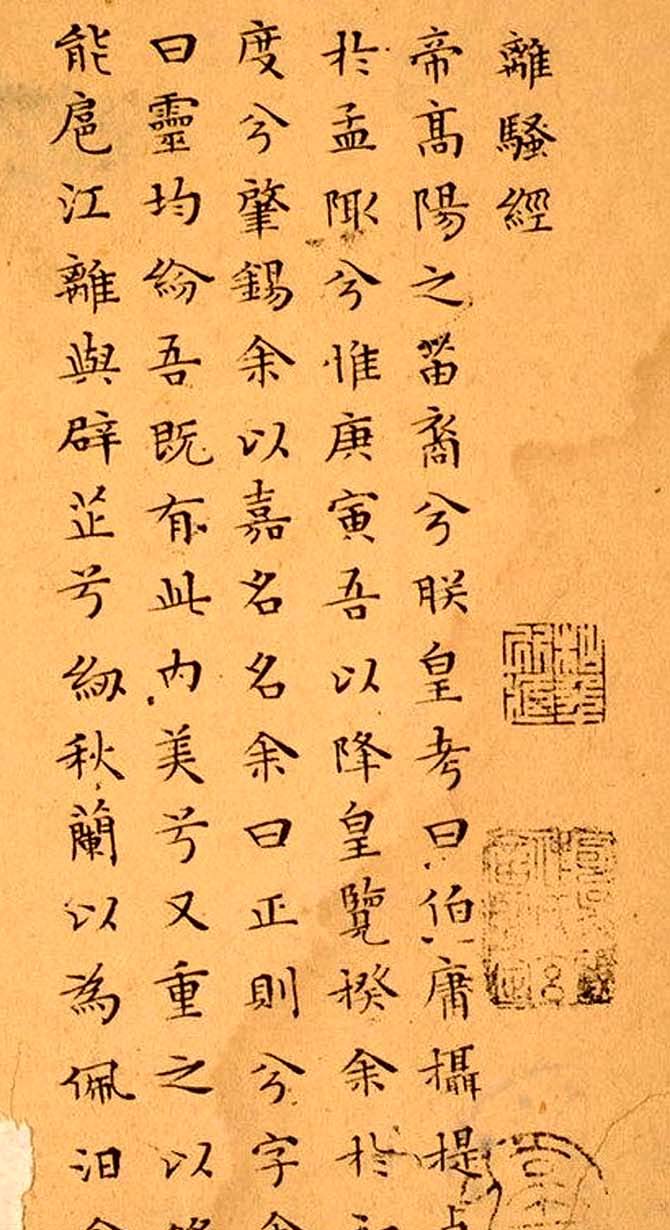 離騷經
帝高陽之苖裔兮朕皇考曰伯庸攝提
於孟陬兮惟庚寅吾以降皇覽揆余於
度兮肇錫余以嘉名名余曰正則兮字
曰靈均紛吾既有此内美兮又重之以
能扈江離與辟芷兮紉秋蘭以為佩汨